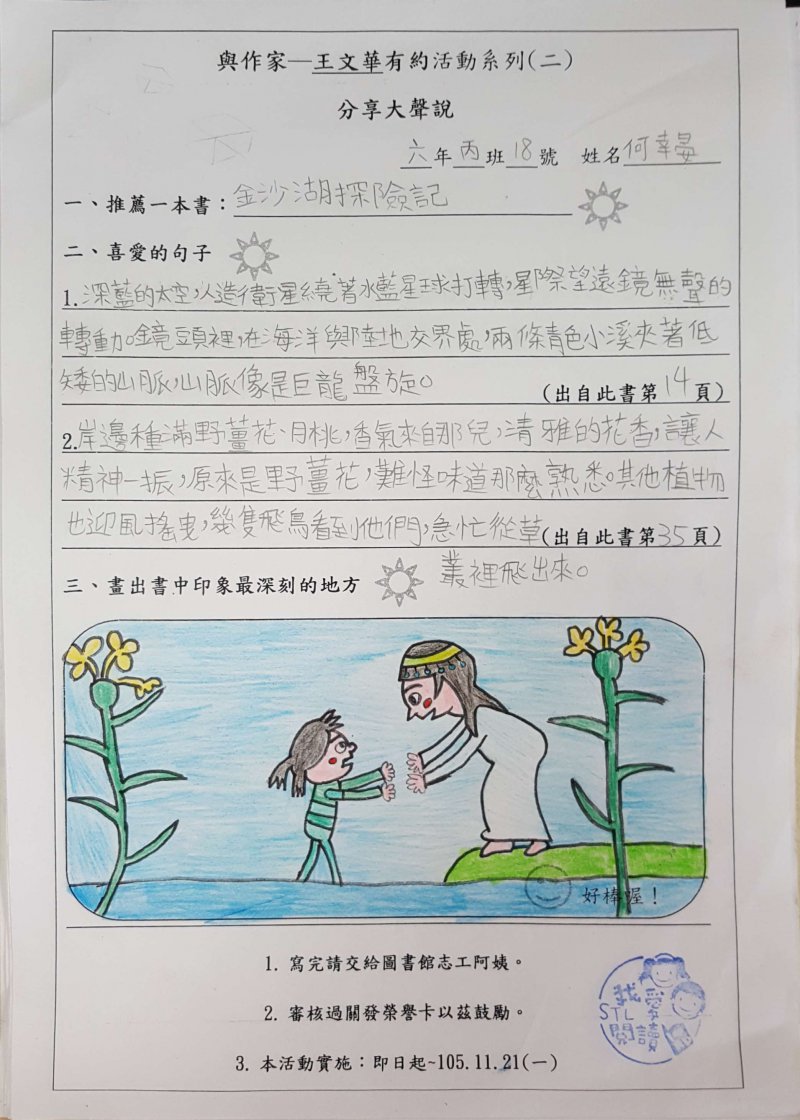 與作家—王文華有約活動系列(二)
分享大聲說
六年丙班18號 姓名何幸晏
一、推薦一本書：金沙湖探險記
二、喜愛的句子
1.深藍的太空，人造衛星繞著水藍星球打轉，星際望遠鏡無聲的
轉動。鏡頭裡，在海洋與陸地交界處，兩條青色小溪夾著低
矮的山脈，山脈像是巨龍盤旋。(出自此書第14頁)
2.岸邊種滿野薑花、月桃，香氣來自那兒，清雅的花香，讓人
精神一振，原來是野薑花，難怪味道那麼熟悉。其他植物
也迎風搖曳，幾隻飛鳥看到他們，急忙從草(出自此書第35頁)
叢裡飛出來。
三、畫出書中印象最深刻的地方
好棒喔！
1. 寫完請交給圖書館志工阿姨。
2. 審核過關發榮譽卡以茲鼓勵。
3. 本活動實施：即日起~105.11.21(一)
我愛
STL
閱讀